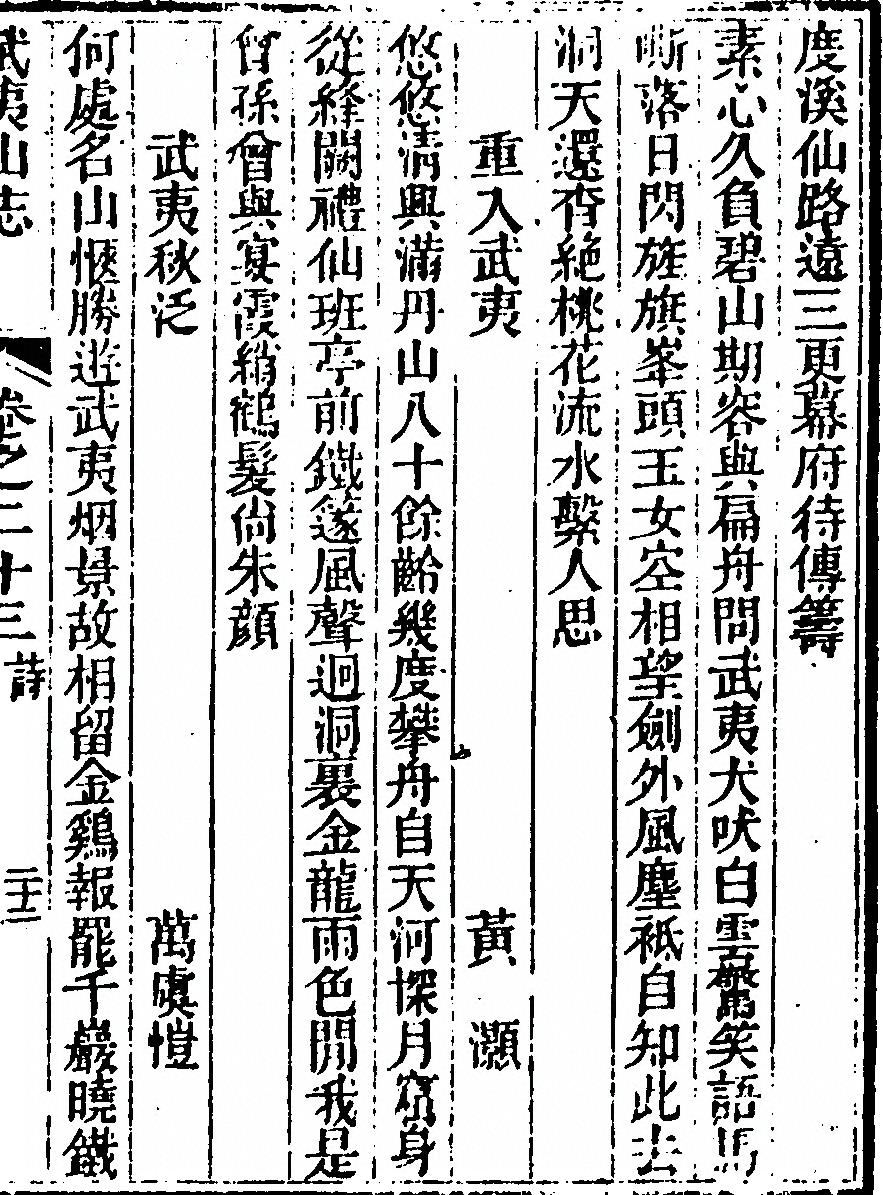 度溪仙路遠三更幕府待傳籌
素心久負碧山期容與扁舟問武夷犬吠白雲驚笑語馬
嘶落日閃旌旗峯頭玉女空相望劍外風塵祗自知此去
洞天還杳絶桃花流水繫人思
重入武夷 黃灝
悠悠清興滿丹山八十餘齡幾度攀舟自天河探月窟身
從絳闕禮仙班亭前鐵篴風聲迥洞裏金龍雨色閒我是
曾孫曾與宴霞綃鶴髮尙朱顔
武夷秋泛 萬虞愷
何處名山愜勝遊武夷烟景故相留金鷄報罷千巖曉鐵
武夷山志 卷之二十三 詩 二十三